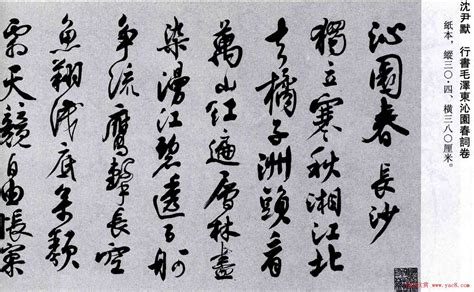 沈尹默 行書毛澤東沁園春詞卷
紙本，縱三〇·四、橫三八〇厘米。
沁園春 長沙
獨立寒秋湘江北
去橘子洲頭看
萬山紅遍層林盡
染漫江碧透百舸
爭流鷹擊長空
魚翔淺底萬類
霜天競自由悵寥
www.yac8.com